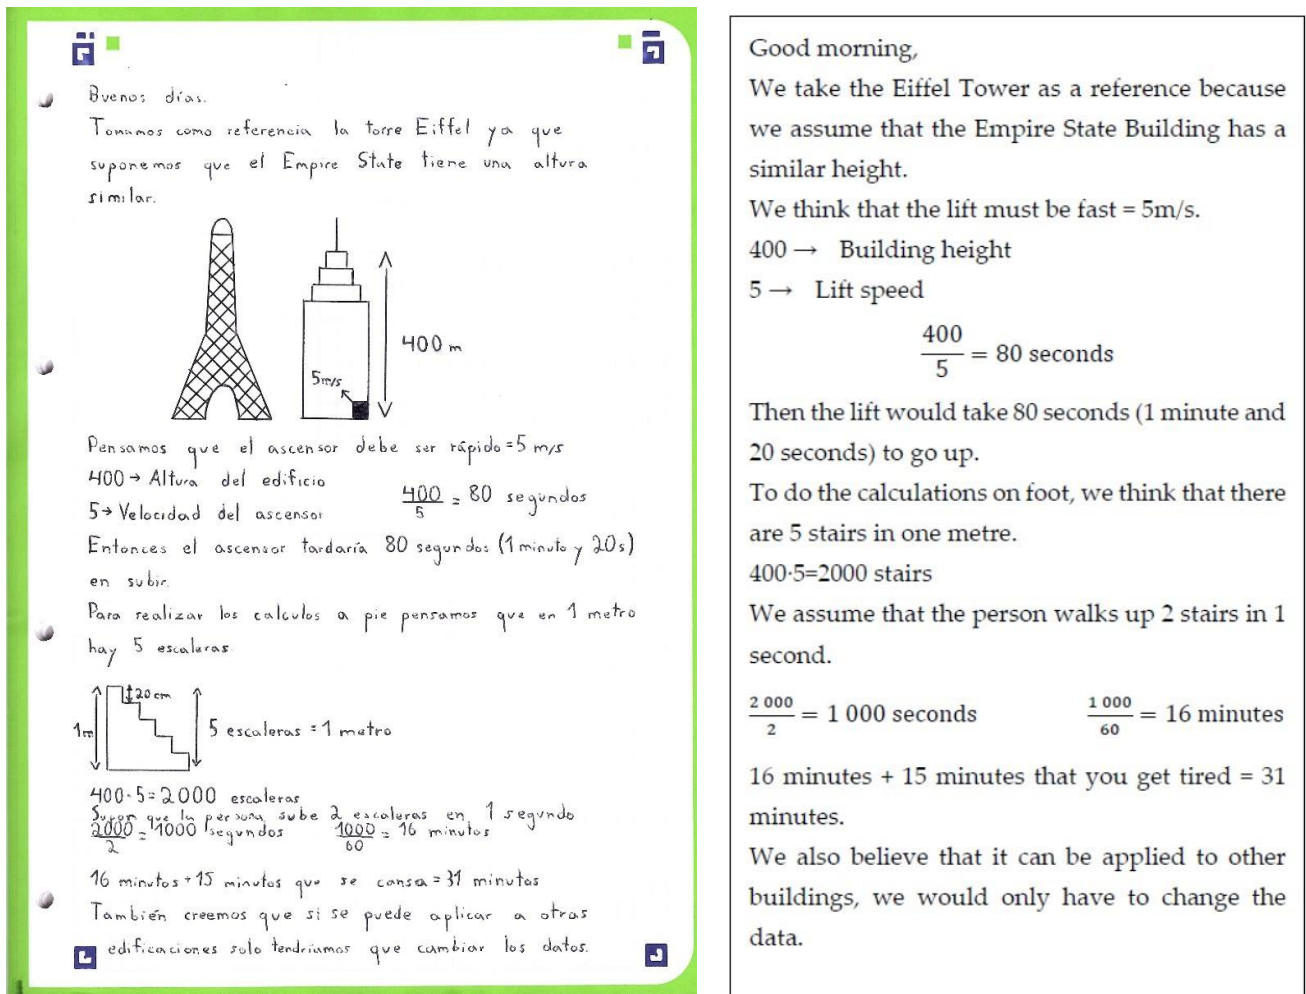 Buenos días.
Tomamos como referencia la torre Eiffel ya que
suponemos que el Empire State tiene una altura
similar.
400 m
5m/s
Pensamos que el ascensor debe ser rápido = 5 m/s
400 → Altura del edificio
5 → Velocidad del ascensor
400/5 = 80 segundos
Entonces el ascensor tardaría 80 segundos (1 minuto y 20s)
en subir.
Para realizar los calculos a pie pensamos que en 1 metro
hay 5 escaleras.
20 cm
1m
5 escaleras = 1 metro
400·5=2000 escaleras
Supon que la persona sube 2 escaleras en 1 segundo
2000/2 = 1000 segundos 1000/60 = 16 minutos
16 minutos + 15 minutos que se cansa = 31 minutos
También creemos que si se puede aplicar a otras
edificaciones solo tendríamos que cambiar los datos.
Good morning,
We take the Eiffel Tower as a reference because
we assume that the Empire State Building has a
similar height.
We think that the lift must be fast = 5m/s.
400 → Building height
5 → Lift speed
400/5 = 80 seconds
Then the lift would take 80 seconds (1 minute and
20 seconds) to go up.
To do the calculations on foot, we think that there
are 5 stairs in one metre.
400·5=2000 stairs
We assume that the person walks up 2 stairs in 1
second.
2 000/2 = 1 000 seconds 1 000/60 = 16 minutes
16 minutes + 15 minutes that you get tired = 31
minutes.
We also believe that it can be applied to other
buildings, we would only have to change the
data.